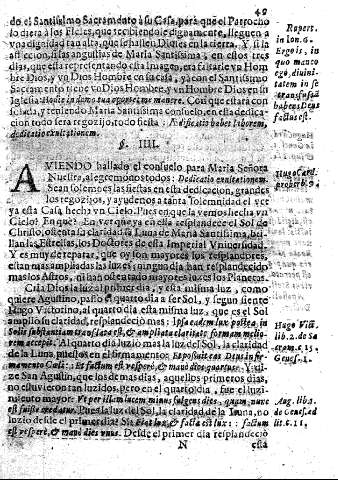 49
do el Santissimo Sacramento à su Casa, para que el Patrocho
lo diera à los Fieles, que recibiendole dignamente, lleguen à
vna dignidad tan alta, que se hallen Dioses en la tierra. Y si la
aficcion, si las angustias de Maria Santissima, en estos tres
dias, que esta representando esta Imagen, era faltarle vn Hom
bre Dios, y vn Dios Hombre en su casa, ya con el Santissimo
Sacramento tiene vn Dios Hombre, y vn Hombre Dios en su
Iglesia
Con que estarà con
solada, y teniendo Maria Santissima Consuelo, en esta dedica-
cion todo serà regozijo, todo fiesta: Ædificatio habet laborem,
dedicatio exultationem.
§. IIII.
AVIENDO hallado el consuelo para Maria Señora
Nuestra, alegremonos todos: Dedicatio exultationem.
Sean solemnes las fiestas en esta dedicacion, grandes
los regozijos, y ayudenos à tanta solemnidad el ver
ya esta Casa hecha vn Cielo. Pues en que la vemos hecha vn
Cielo? En que? En ver que ya en esta resplandece el Sol de
Christo, ostenta su claridad la Luna de Maria Santissima, bri-
llan las Estrellas, los Doctores de esta Imperial Vniversidad.
Y es muy de reparar, que oy son mayores los resplandores,
estan mas ampliadas las luzes; ningun dia han resplandecido
mas los Astros, ni han ostentado mayores luzes los Planetas.
Cria Dios la luz al primer dia, y esta misma luz, como
quiere Agustino, passò el quarto dia à ser Sol, y segun siente
Hugo Victorino, al quarto dia esta misma luz, que es el Sol
ampliò su claridad, resplandeciò mas: Ipsa eadem lux postea, in
Solis substantiam translata est, & ampliata claritate formam melio-
rem accepit. Al quarto dia luziò mas la luz del Sol, la claridad
de la Luna, puestos en el firmamento: Et posuit eas Deus in fir-
mamento Cœli: Et factum est vesperè, & manè dies quartus. Y di-
ze San Agustin, que los demas dias, aquellos primeros dias,
no estuvieron tan luzidos, pero en el quarto dia, fue el luzi-
miento mayor: Vt per illam lucem minus fulgens dies, quam nunc
est fuisse credatur. Pues la luz del Sol, la claridad de la Luna, no
luziò desde el primer dia? Si: Fiat lux & facta est lux: factum
est vesperè, & manè dies vnus. Desde el primer dia resplandeciò
N
esta
Rupert.
in Ion. G.
Ergo is, in
quo maneo
ego, divini-
tatem in se
transfusam
habeo, Deus
factus est.
Hugo Card.
proverb. 9.
Hugo Vict.
lib. 2. de Sa
cram. c. 15.
Genes. 1.
Aug. lib. 2.
de Genes. ad
lit. c. 11.